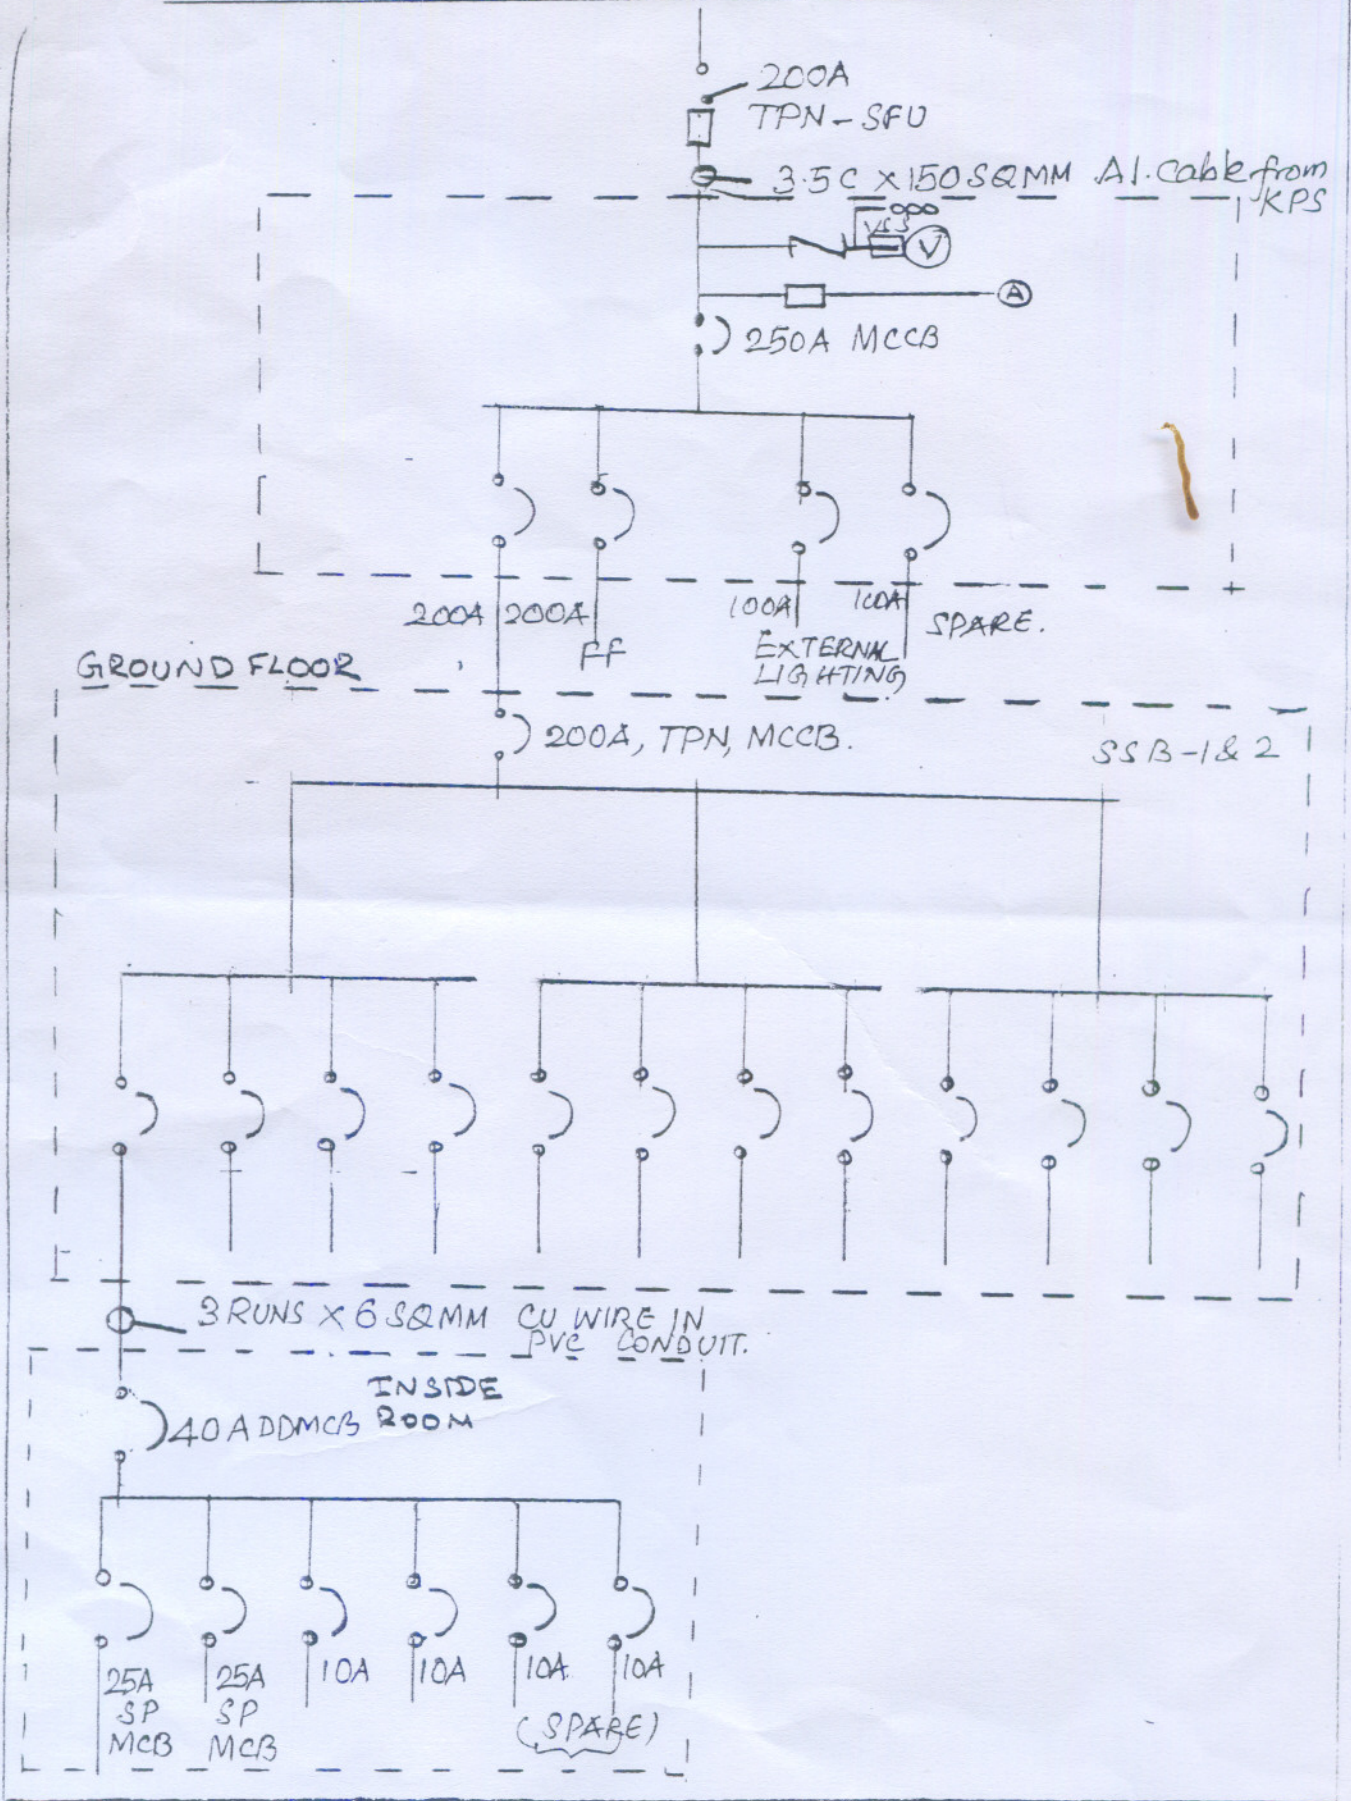 200A
TPN-SFU
3.5C X 150 SQMM Al. Cable from
KPS
VSS
V
A
250A MCCB
200A 200A 100A 100A SPARE.
FF EXTERNAL
LIGHTING
GROUND FLOOR
200A, TPN, MCCB.
SSB-1 & 2
3 RUNS X 6 SQMM CU WIRE IN
PVC CONDUIT.
INSIDE
ROOM
40A DDMCB
25A 25A 10A 10A 10A 10A
SP SP (SPARE)
MCB MCB